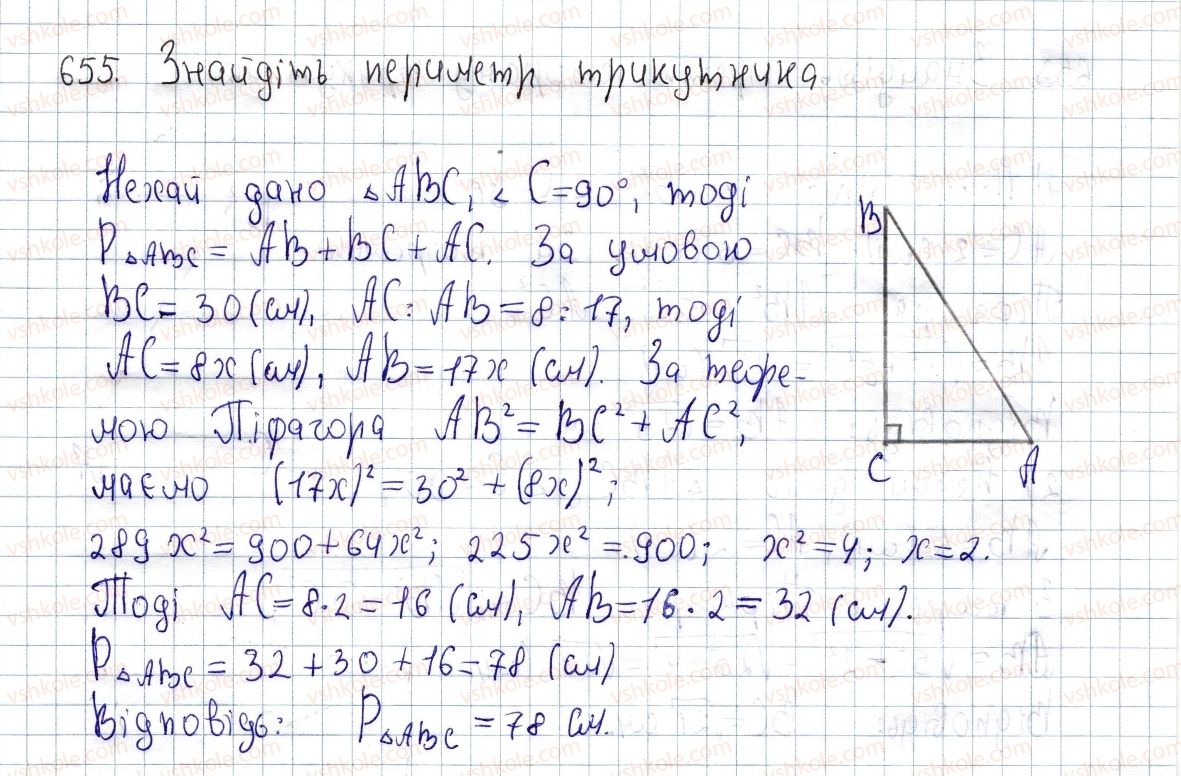 655. Знайдіть периметр трикутника
Нехай дано △ABC, < C=90°, тоді
P△ABC = AB+BC+AC. За умовою
BC= 30 (см), AC : AB = 8 : 17, тоді
AC=8x (см), AB=17x (см). За теоре-
мою Піфагора AB²= BC²+ AC²,
маємо (17x)²=30²+(8x)²;
289x²=900+64x²; 225x²=900; x²=4; x=2.
Тоді AC=8·2=16 (см), AB=16·2=32 (см).
P△ABC = 32+30+16=78 (см)
Відповідь: P△ABC = 78 см.
B
C
A
vshkole.com